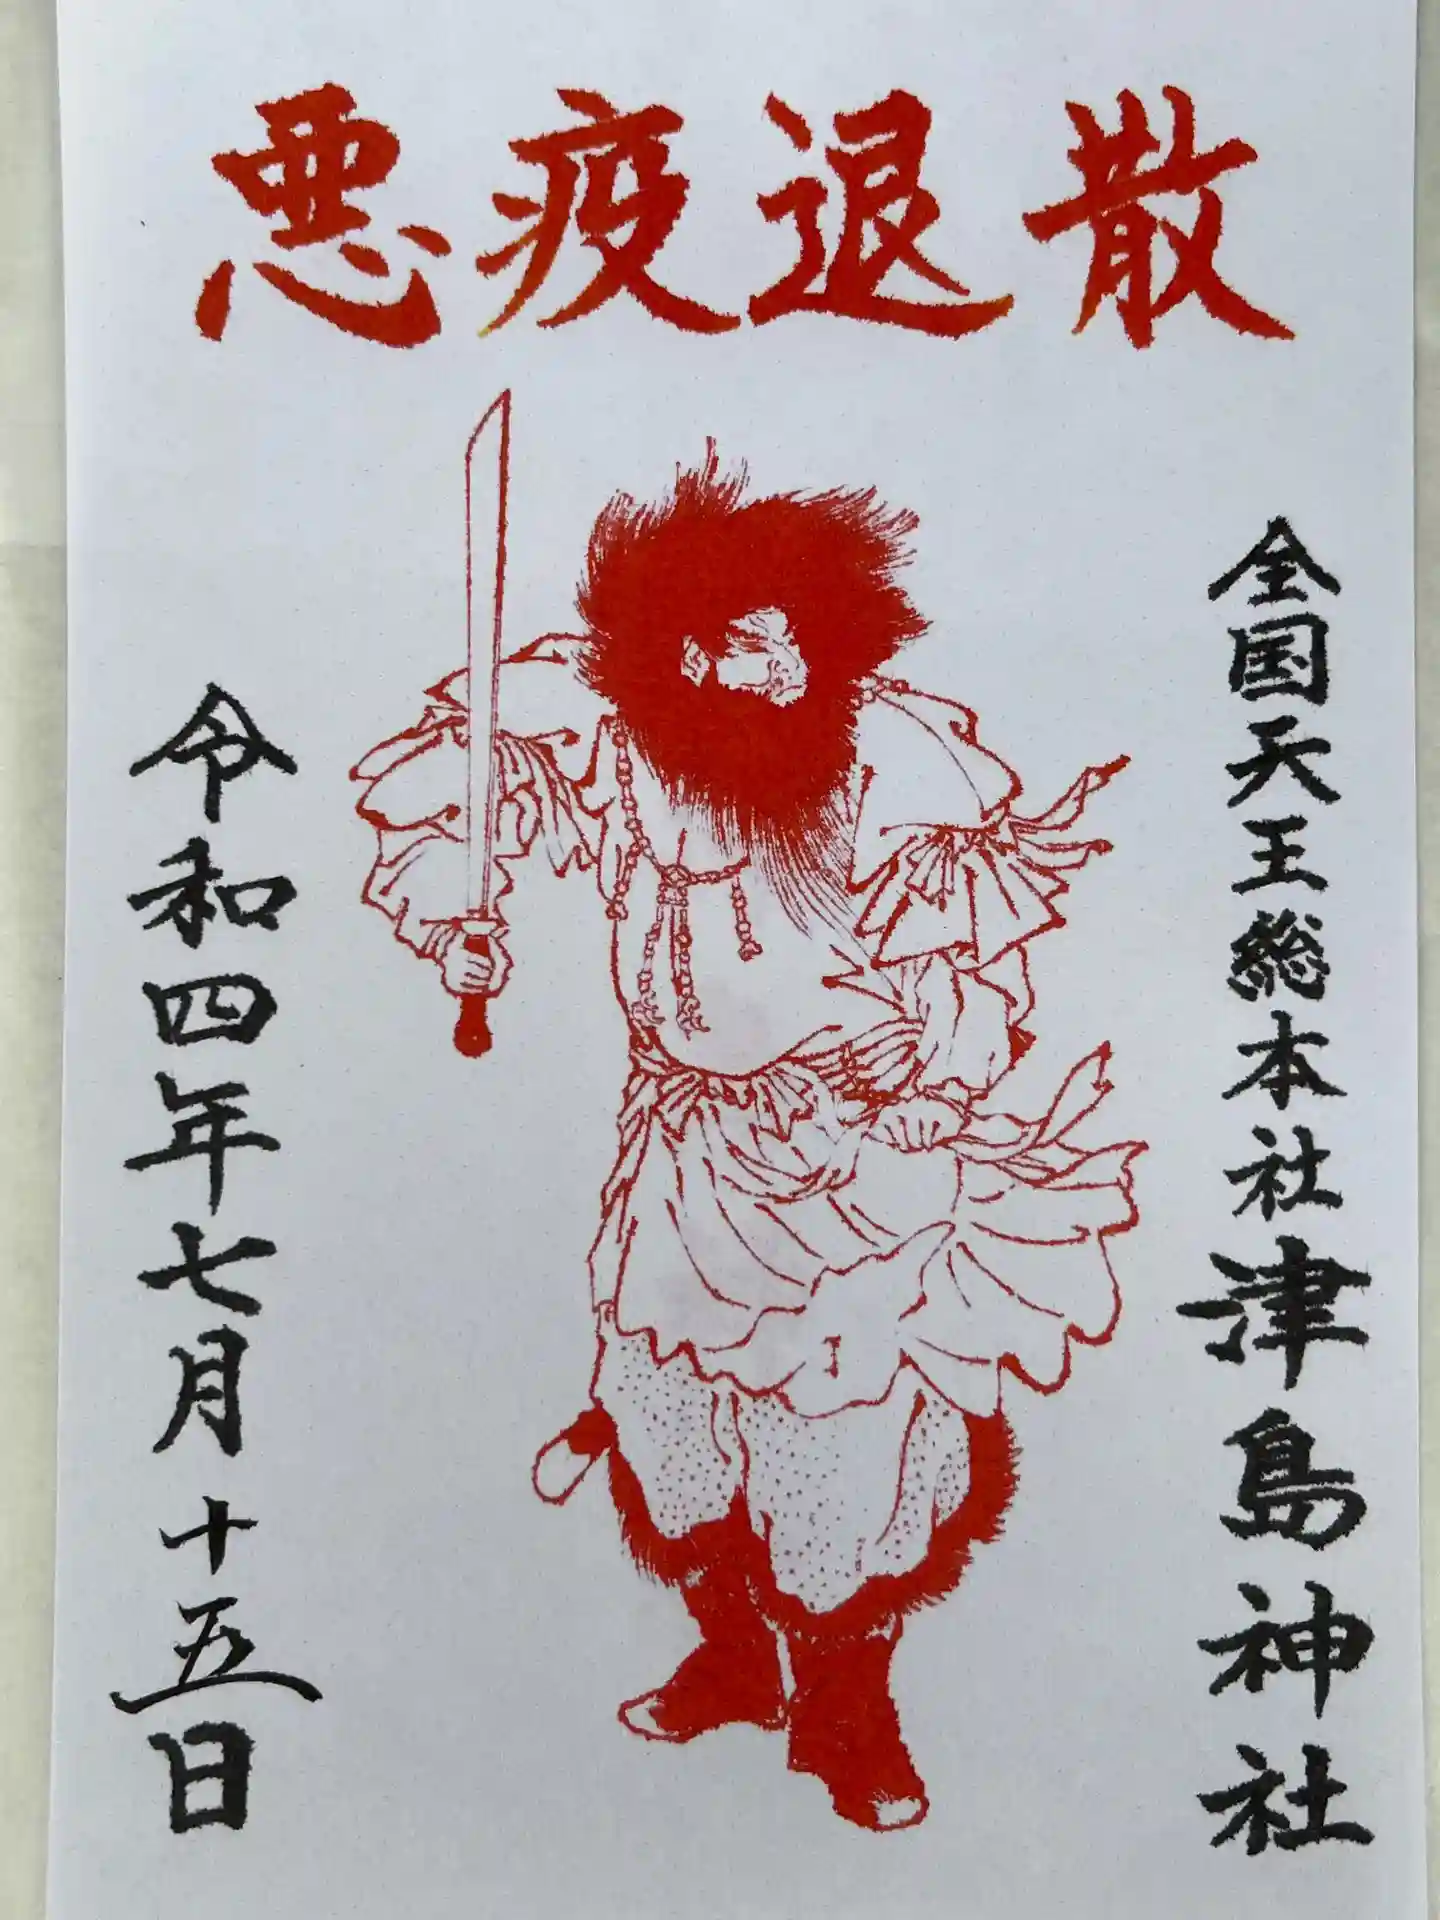 悪疫退散
全国天王総本社津島神社
令和四年七月十五日